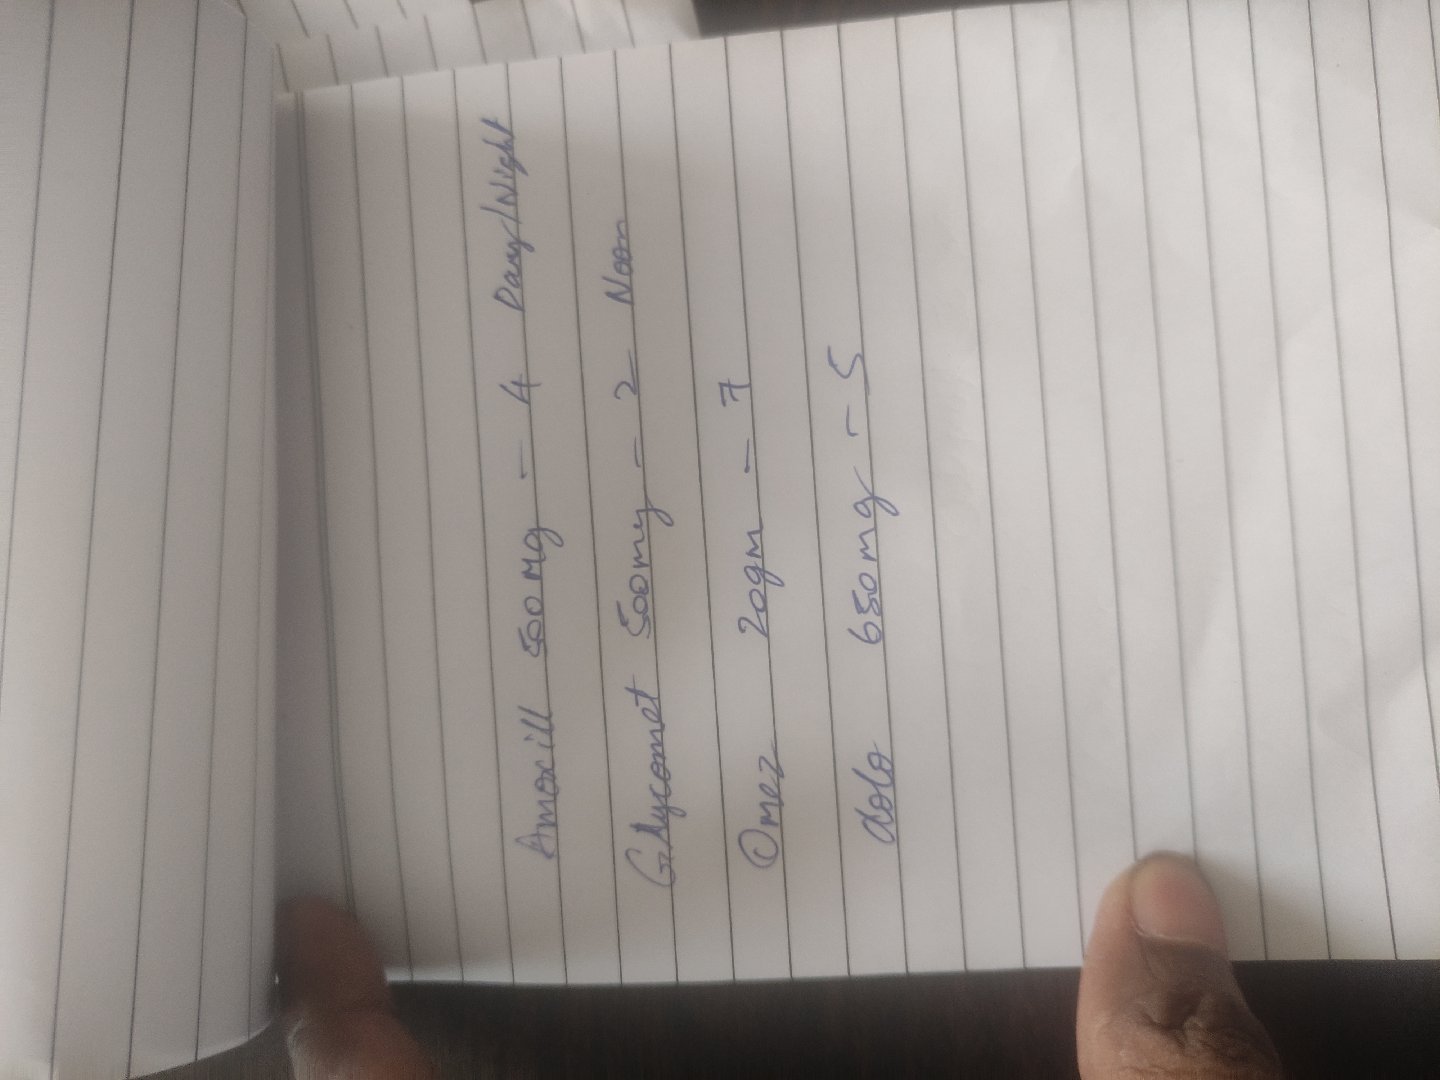 Amoxill 500mg - 4 Day/Night
Glycomet 500mg - 2 Noon
Omez 20gm - 7
dolo 650mg - 5